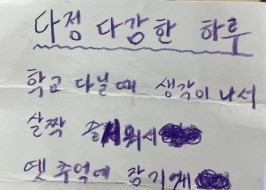 다정 다감한 하루
학교 다닐때 생각이 나서
살짝
옛 추억에 잠기게